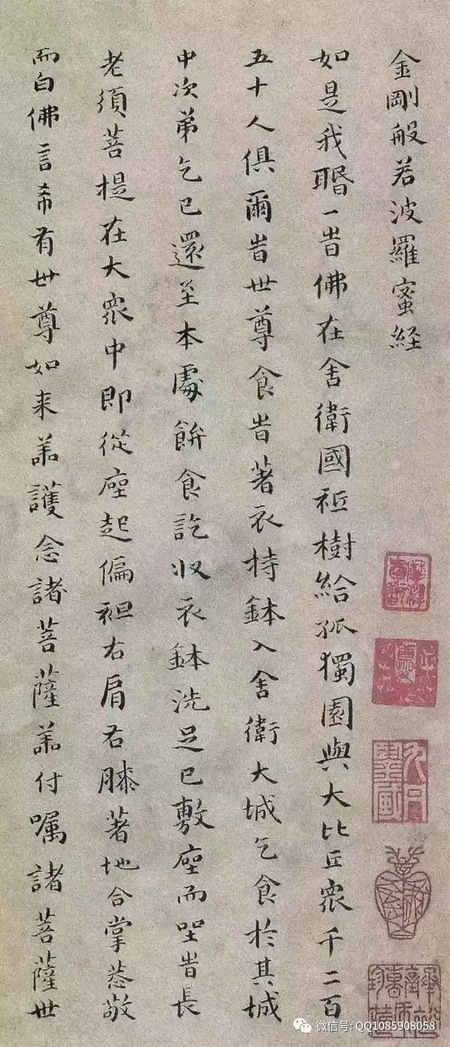 金剛般若波羅蜜経
如是我聞一旹佛在舍衛國祇樹給孤獨園與大比丘衆千二百
五十人俱爾旹世尊食旹著衣持鉢入舍衛大城乞食於其城
中次第乞已還至本處飰食訖収衣鉢洗足已敷座而坐旹長
老須菩提在大衆中即從座起偏袒右肩右膝著地合掌恭敬
而白佛言希有世尊如来善護念諸菩薩善付嘱諸菩薩世
微信号: QQ1085908058